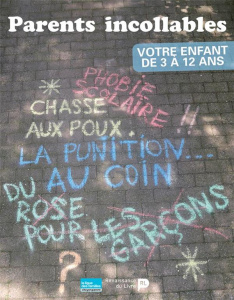 Parents incollables
VOTRE ENFANT
DE 3 À 12 ANS
PHOBIE
SCOLAIRE !!
CHASSE
AUX POUX.
LA PUNITION...
AU COIN
DU
ROSE
POUR LES
GARÇONS
?
Renaissance
du Livre